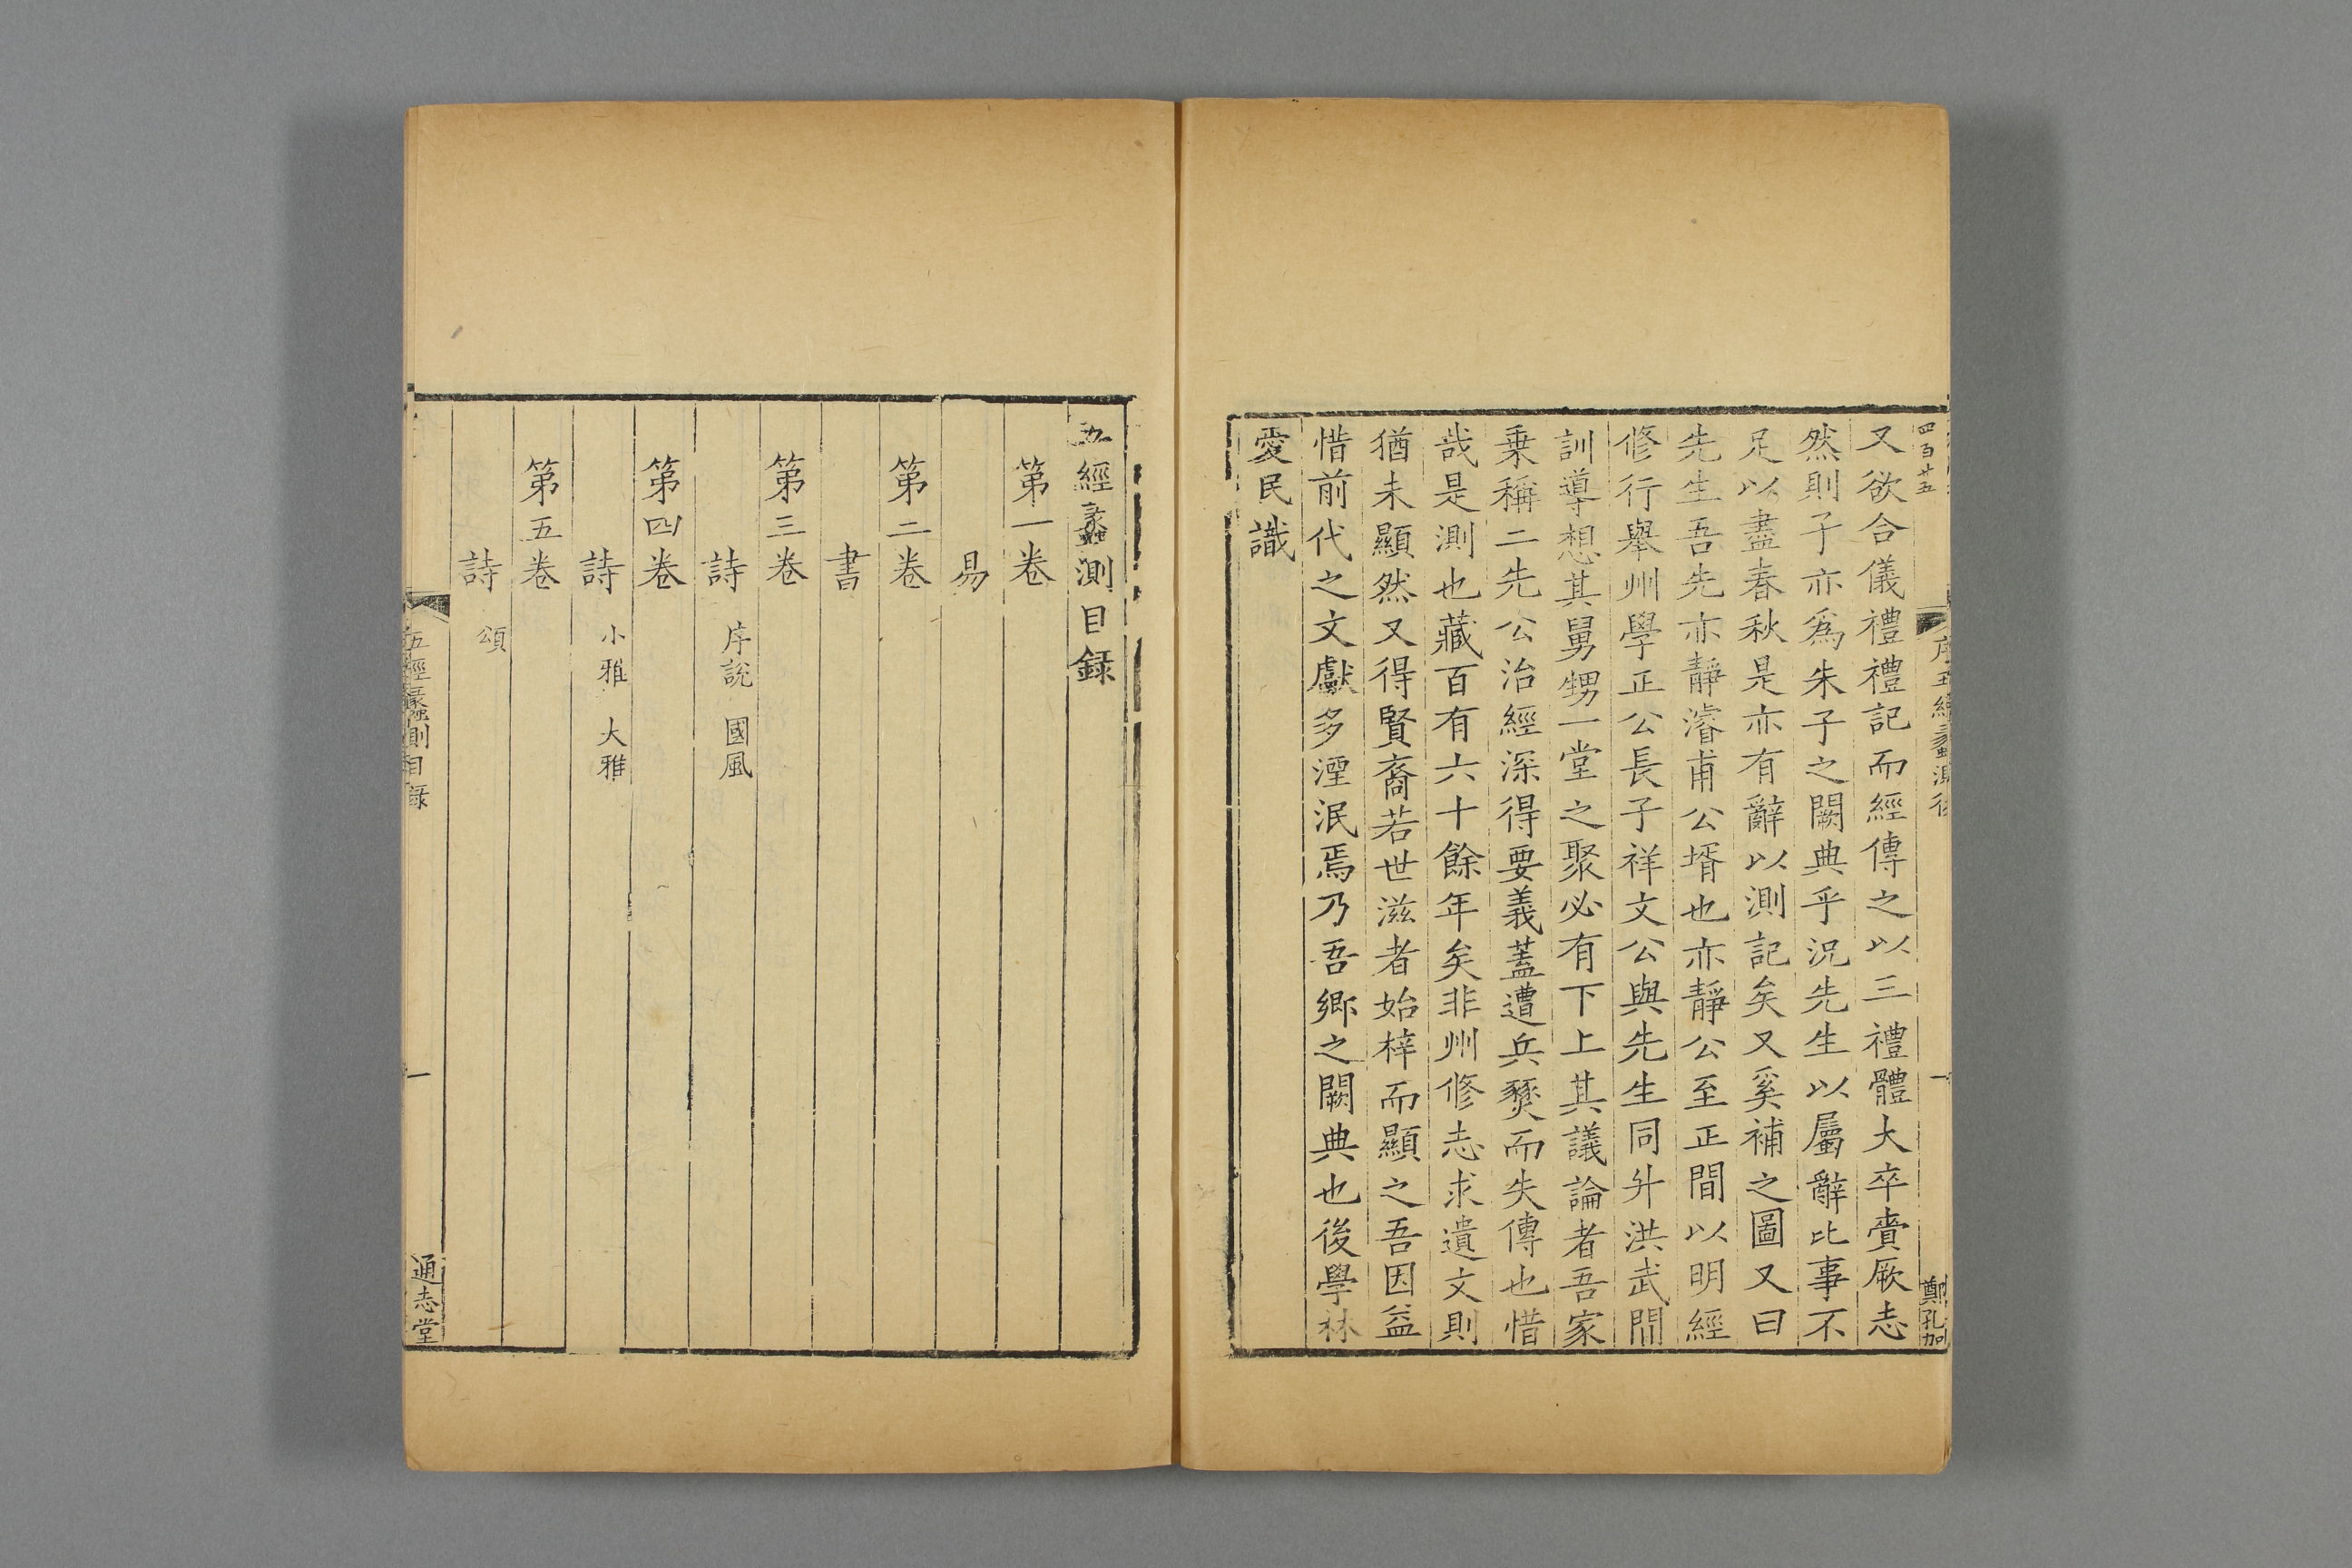 四百廿五
序五經蠡測後
一
鄭孔加
又欲合儀禮禮記而經傳之以三禮體大卒賷厥志
然則子亦爲朱子之闕典乎況先生以屬辭比事不
足以盡春秋是亦有辭以測記矣又奚補之圖又曰
先生吾先亦靜濬甫公壻也亦靜公至正間以明經
修行舉州學正公長子祥文公與先生同升洪武間
訓導想其舅甥一堂之聚必有下上其議論者吾家
乗稱二先公治經深得要義蓋遭兵燹而失傳也惜
哉是測也藏百有六十餘年矣非州修志求遺文則
猶未顯然又得賢裔若世滋者始梓而顯之吾因益
惜前代之文獻多湮泯焉乃吾鄉之闕典也後學林
愛民識
五經蠡測目録
第一卷
易
第二卷
書
第三卷
詩 序說 國風
第四卷
詩 小雅 大雅
第五卷
詩 頌
五經蠡測目録
一
通志堂